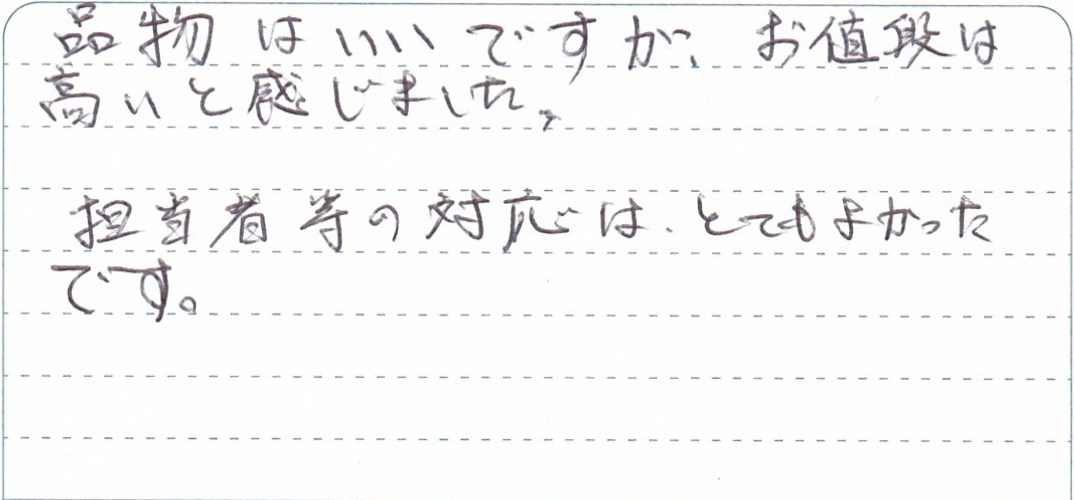 品物はいいですが、お値段は
高いと感じました。
担当者等の対応は、とてもよかった
です。